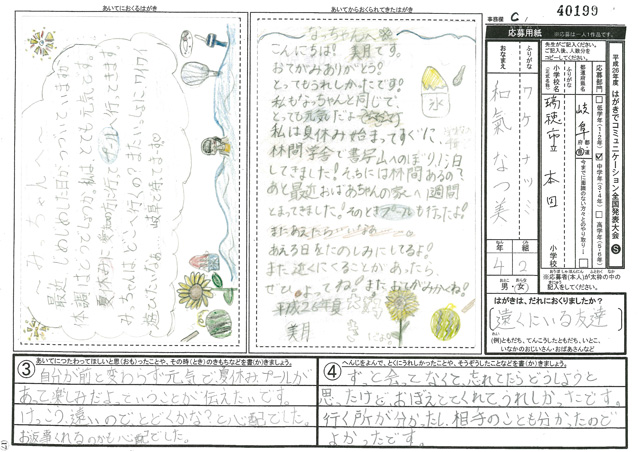 あいてにおくるはがき
あいてからおくられてきたはがき
事務欄 C
40199
応募用紙
※応募は一人1作品です。
平成26年度 はがきでコミュニケーション全国発表大会 S
先生がご記入ください。
ご記入後、人数分を
コピーしてください。
応募部門
低学年(1・2年)
中学年(3・4年)
高学年(5・6年)
都道府県名
岐阜
ふりがな
小学校名
瑞穂市立 本田
小学校
ふりがな ワケ ナツミ
おなまえ
和氣 なつ美
年 組
4 2
男・女
※応募者(本人)が太枠の中の
記入をしてください。
はがきは、だれにおくりましたか?
遠くにいる友達
(例)ともだち、てんこうしたともだち、いとこ、
いなかのおじいさん・おばあさんなど
みちちゃんへ
最近、じめじめした日がつづいていますね
体調はどうでしょうか。私は、とても元気です。
なっちゃんへ
こんにちは!美月です。
おてがみありがとう!
とってもうれしかったです!
私もなっちゃんと同じで、
とっても元気だよ
私は夏休み始まってすぐに、
林間学舎で
してきました!そちらには林間あるの?
あと最近おばあちゃんの家へ1週間
とまってきました!そのときプールも行ったよ!
またあえたらいいね。
あえる日をたのしみにしてるよ!
また近くにくることがあったら、
ぜひ
平成26年度
美月
氷
③ あいてにつたわってほしいと思(おも)ったことや、その時(とき)のきもちなどを書(か)きましょう。
自分が前と変わらず元気で、夏休み、プールが
あって楽しみだよ。ていうことが伝えたいです。
けっこう遠いので、とどくかな?と心配でした。
お返事くれるのかも心配でした。
④ へんじをよんで、とくにうれしかったことや、そうぞうしたことなどを書(か)きましょう。
ずっと会ってなくて、忘れてたらどうしようと
思ったけど、おぼえててくれてうれしかったです。
行く所が分かったし、相手のことも分かったので
よかったです。